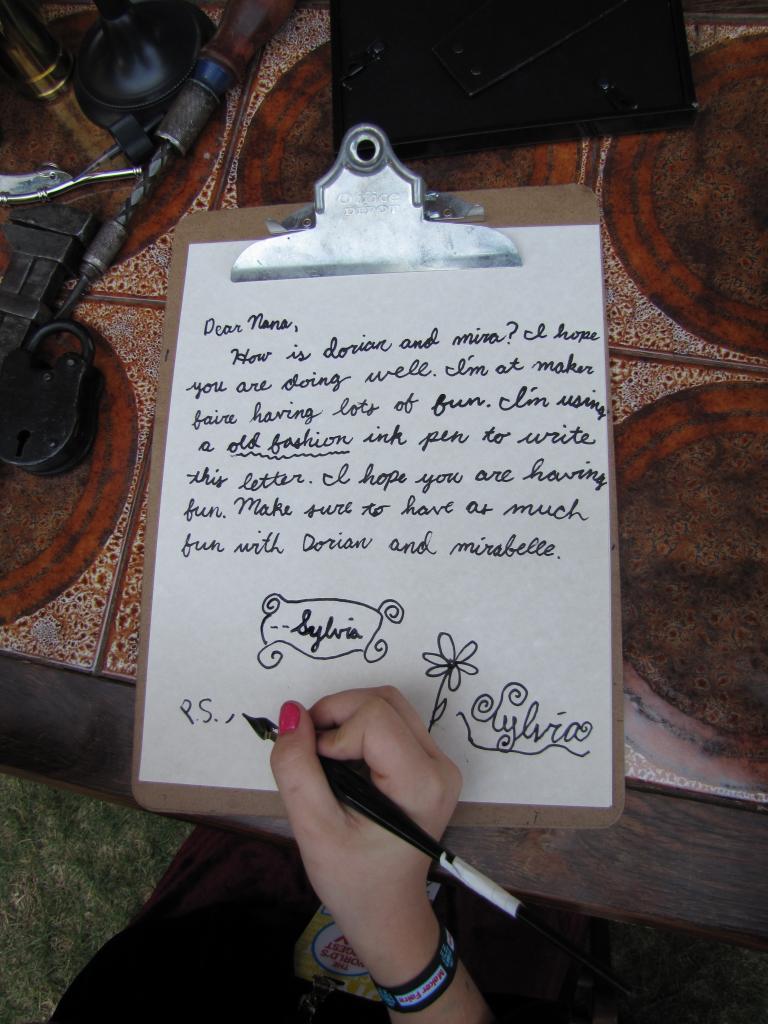 Office
DEPOT
Dear Nana,
How is dorian and mira? I hope
you are doing well. I'm at maker
faire having lots of fun. I'm using
a old fashion ink pen to write
this letter. I hope you are having
fun. Make sure to have as much
fun with Dorian and mirabelle.
-- Sylvia
Sylvia
P.S.,
THE
WORLD'S
Maker Faire